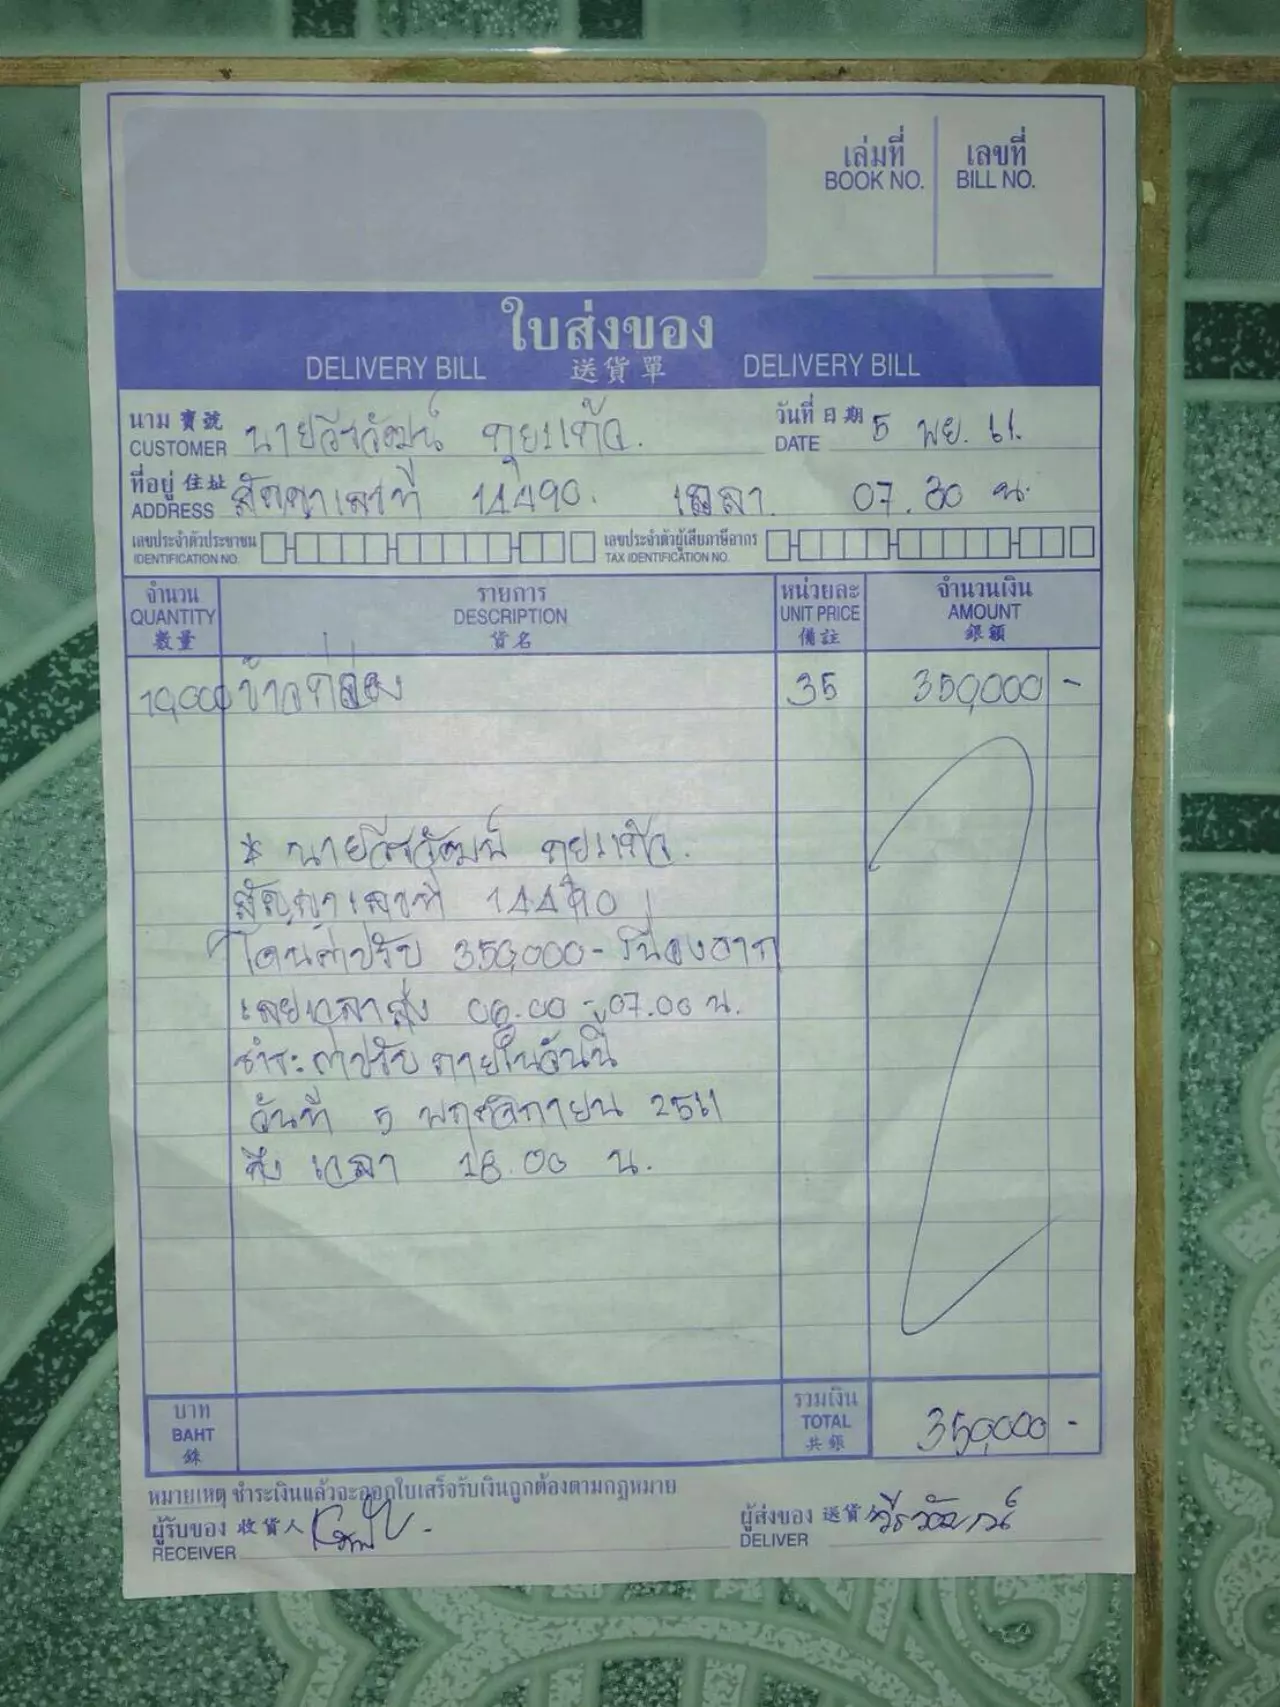 เล่มที่ เลขที่
BOOK NO. BILL NO.
ใบส่งของ
DELIVERY BILL 送貨單 DELIVERY BILL
นาม 寶號 นายวีรวัฒน์ กุยแก้ว. วันที่ 日期 5 พย. 61.
CUSTOMER DATE
ที่อยู่ 住址 สัญญาเลขที่ 14490. เวลา. 07.30 น.
ADDRESS
เลขประจำตัวประชาชน เลขประจำตัวผู้เสียภาษีอากร
IDENTIFICATION NO. TAX IDENTIFICATION NO.
จำนวน รายการ หน่วยละ จำนวนเงิน
QUANTITY DESCRIPTION UNIT PRICE AMOUNT
數量 貨名 備註 銀額
10,000 ข้าวกล่อง 35 350,000 -
* นายวีรวัฒน์ กุยแก้ว.
สัญญาเลขที่ 14490
โดนค่าปรับ 350,000- เนื่องจาก
เลยเวลาส่ง 06.00 - 07.00 น.
ชำระค่าปรับภายในวันนี้
วันที่ 5 พฤศจิกายน 2561
ถึง เวลา 18.00 น.
บาท รวมเงิน
BAHT TOTAL 350,000 -
銖 共銀
หมายเหตุ ชำระเงินแล้วจะออกใบเสร็จรับเงินถูกต้องตามกฎหมาย
ผู้รับของ 收貨人 ผู้ส่งของ 送貨 วีรวัฒน์
RECEIVER DELIVER